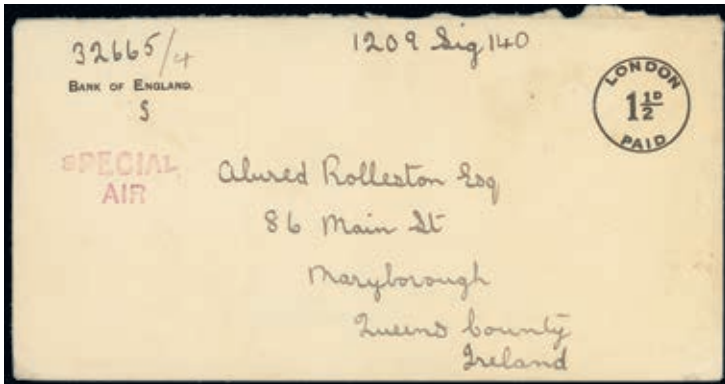 32665/4
1209 Sig 140
BANK OF ENGLAND.
S
LONDON
1½D
PAID
SPECIAL
AIR
Alured Rolleston Esq
86 Main St
Maryborough
Queens County
Ireland